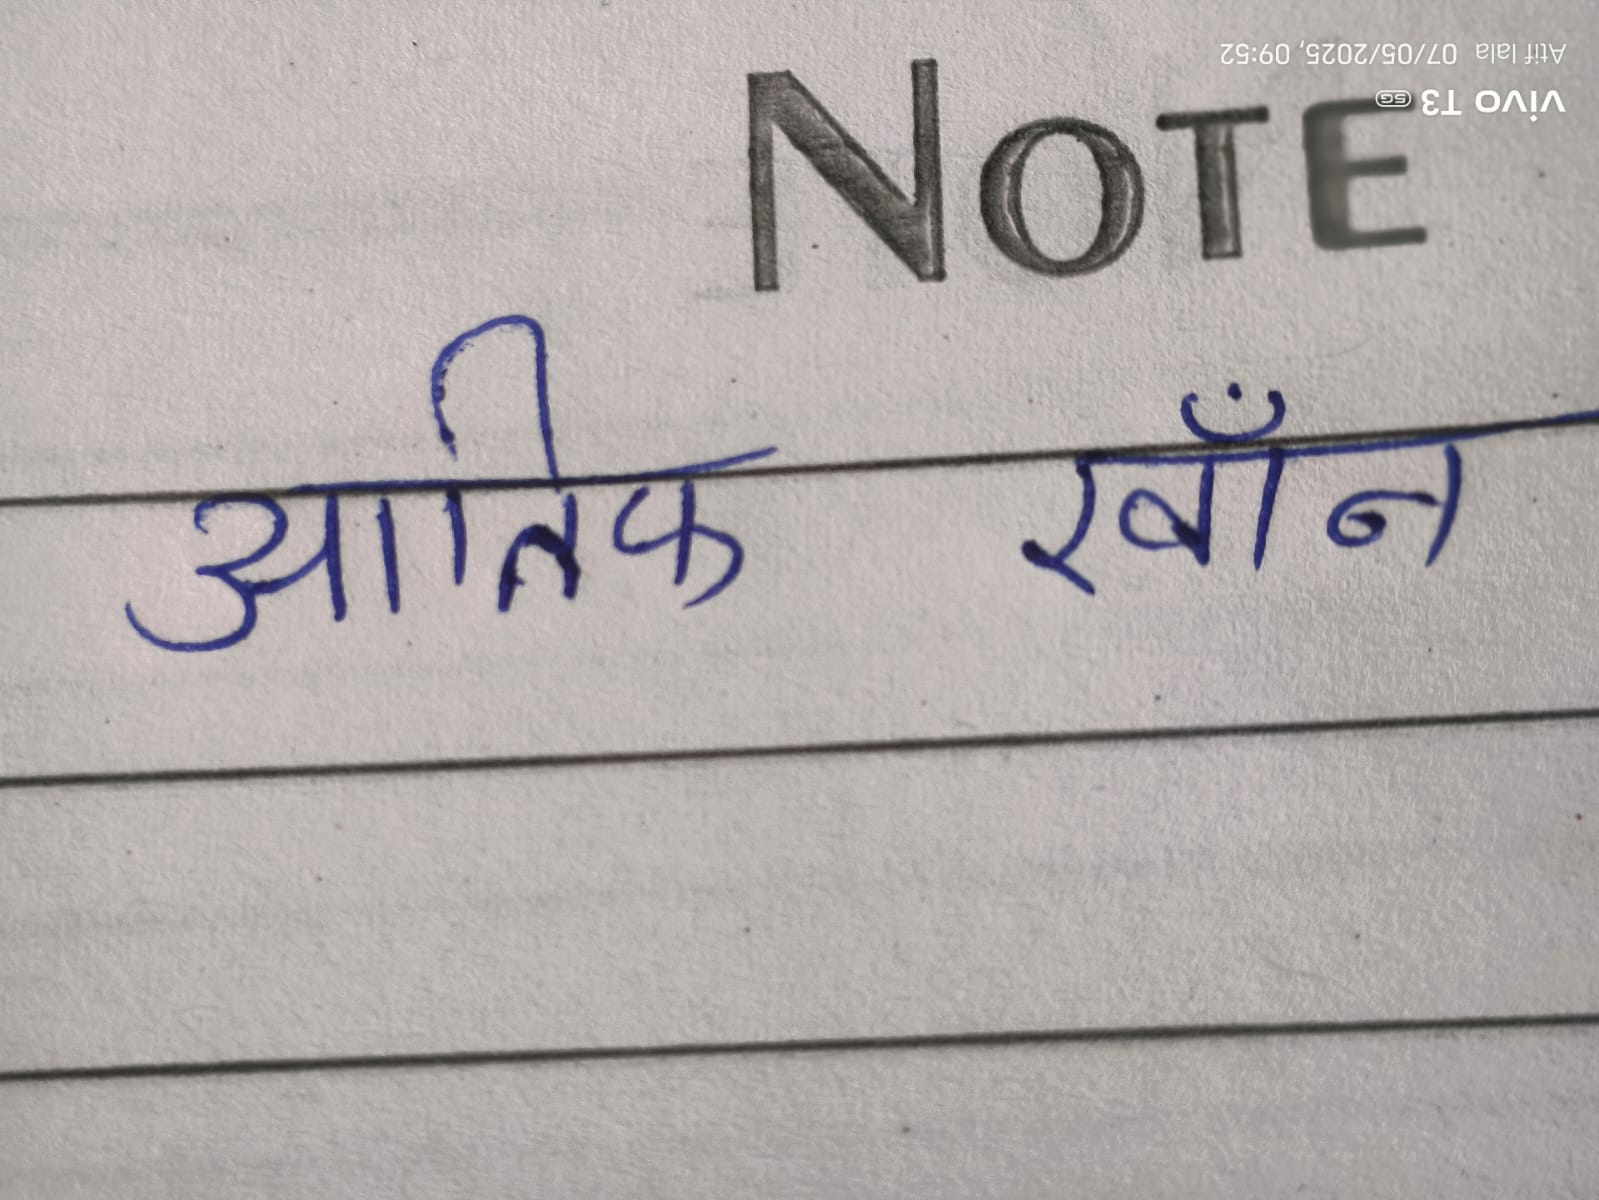 Atif lala 07/05/2025, 09:52
vivo T3 5G
NOTE
आतिफ खाँन